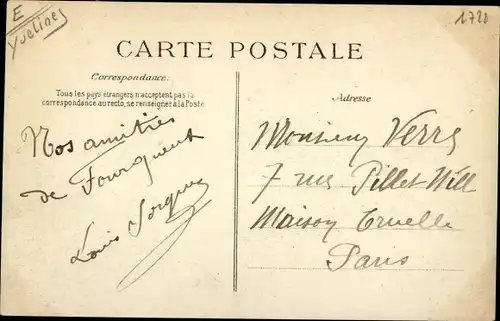 E
Yvelines
1720
CARTE POSTALE
Correspondance:
Tous les pays étrangers n'acceptent pas la
correspondance au recto, se renseigner à la Poste
Nos amitiés
de Fourqueux
Louis
Adresse
Monsieur Verré
7 rue Pillet-Will
Maison Truelle
Paris